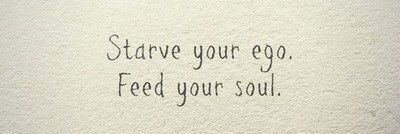 Starve your ego.
Feed your soul.